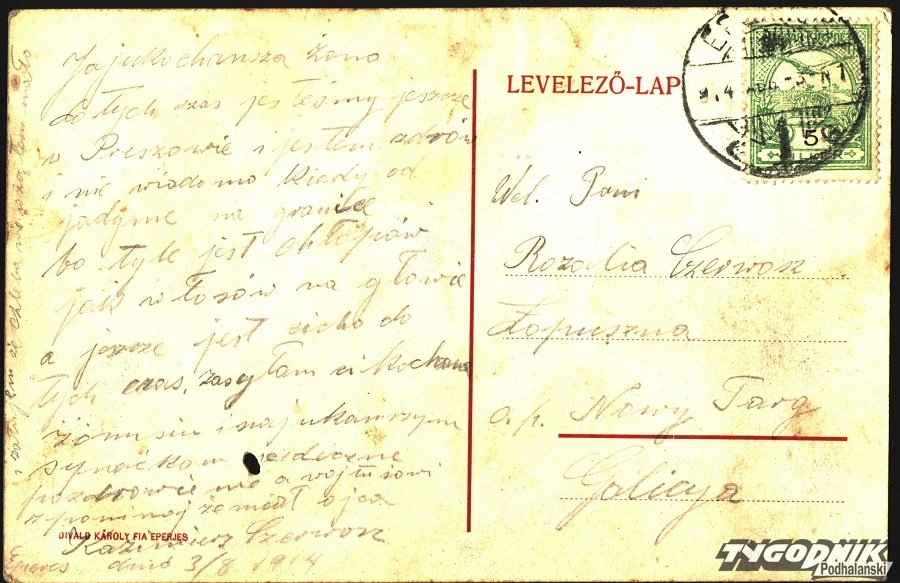 Jajukochansza żono
do tych czas jesteśmy jeszcze
w Preszowie i jestem zdrów
i nie wiadomo kiedy od
jadyme na granice
bo tyle jest chłopów
jak włosów na głowie
a jeszcze jest cicho do
tych czas, zasyłam ci kochana
żonusiu i najukańszym
synaćkom serdeczne
pozdrowienie a wojtusiowi
zpominaj że miał ojca
Kazimierz Czerwosz
dnia 3/8 1914
DIVALD KÁROLY FIA EPERJES
LEVELEZŐ-LAP
Wel. Pani
Rozalia Czerwosz
Łopuszna
a.p. Nowy Targ
Galicya
TYGODNIK
Podhalański